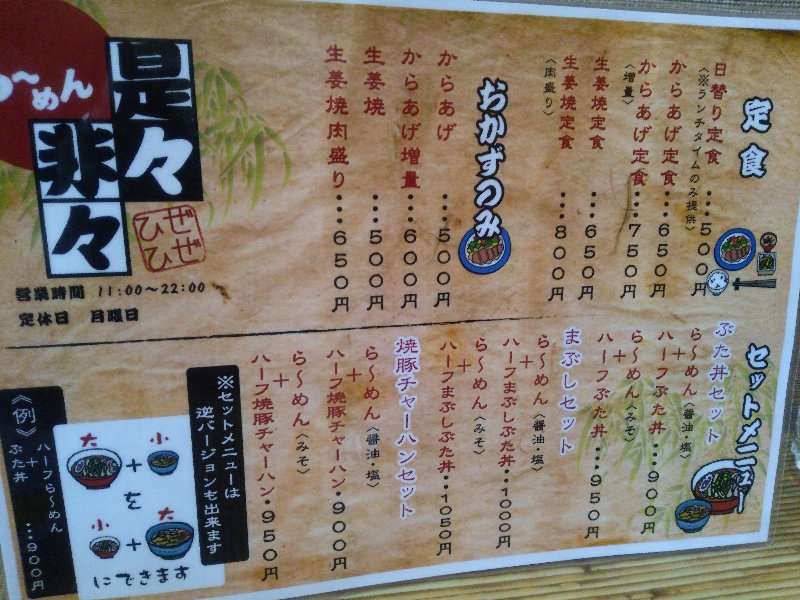 定食
日替り定食・・・500円
〈※ランチタイムのみ提供〉
からあげ定食・・・650円
からあげ定食・・・750円
〈増量〉
生姜焼定食・・・650円
生姜焼定食・・・800円
〈肉盛り〉
おかずのみ
からあげ・・・500円
からあげ増量・・・600円
生姜焼・・・500円
生姜焼肉盛り・・・650円
らーめん
是々
非々
ぜひぜひ
営業時間 11:00〜22:00
定休日 月曜日
セットメニュー
ぶた丼セット
ら〜めん〈醤油・塩〉
+
ハーフぶた丼・・・900円
ら〜めん〈みそ〉
+
ハーフぶた丼・・・950円
まぶしセット
ら〜めん〈醤油・塩〉
+
ハーフまぶしぶた丼・・・1000円
ら〜めん〈みそ〉
+
ハーフまぶしぶた丼・・・1050円
焼豚チャーハンセット
ら〜めん〈醤油・塩〉
+
ハーフ焼豚チャーハン・900円
ら〜めん〈みそ〉
+
ハーフ焼豚チャーハン・950円
※セットメニューは
逆バージョンも出来ます
大 + 小
を
小 + 大
にできます
《例》
ハーフら〜めん
+
ぶた丼 ・・・900円